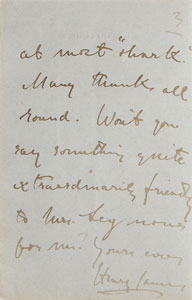 3
at most "shark.
Many thanks all
round. Won't you
say something quite
extraordinarily friendly
to Mrs. Seymour
for me? Yours ever
Henry James